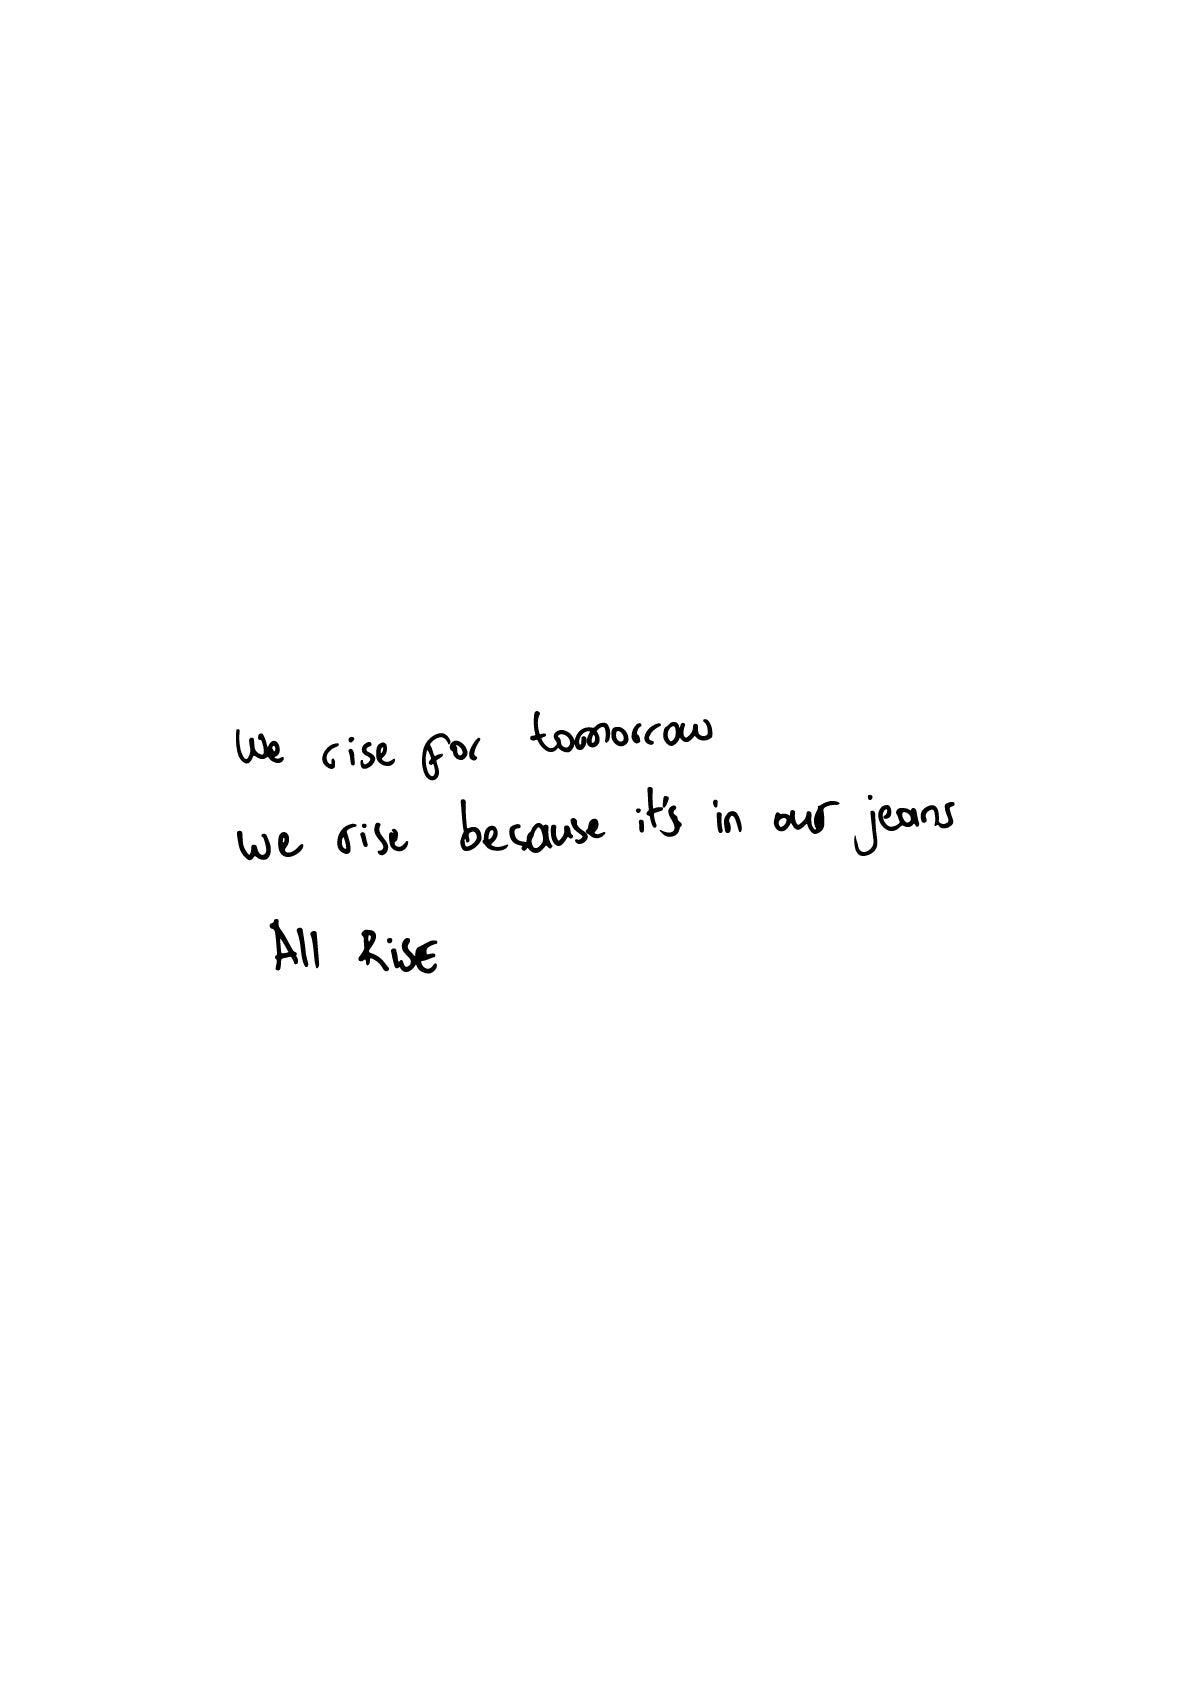 We rise for tomorrow
we rise because it's in our jeans
All RisE